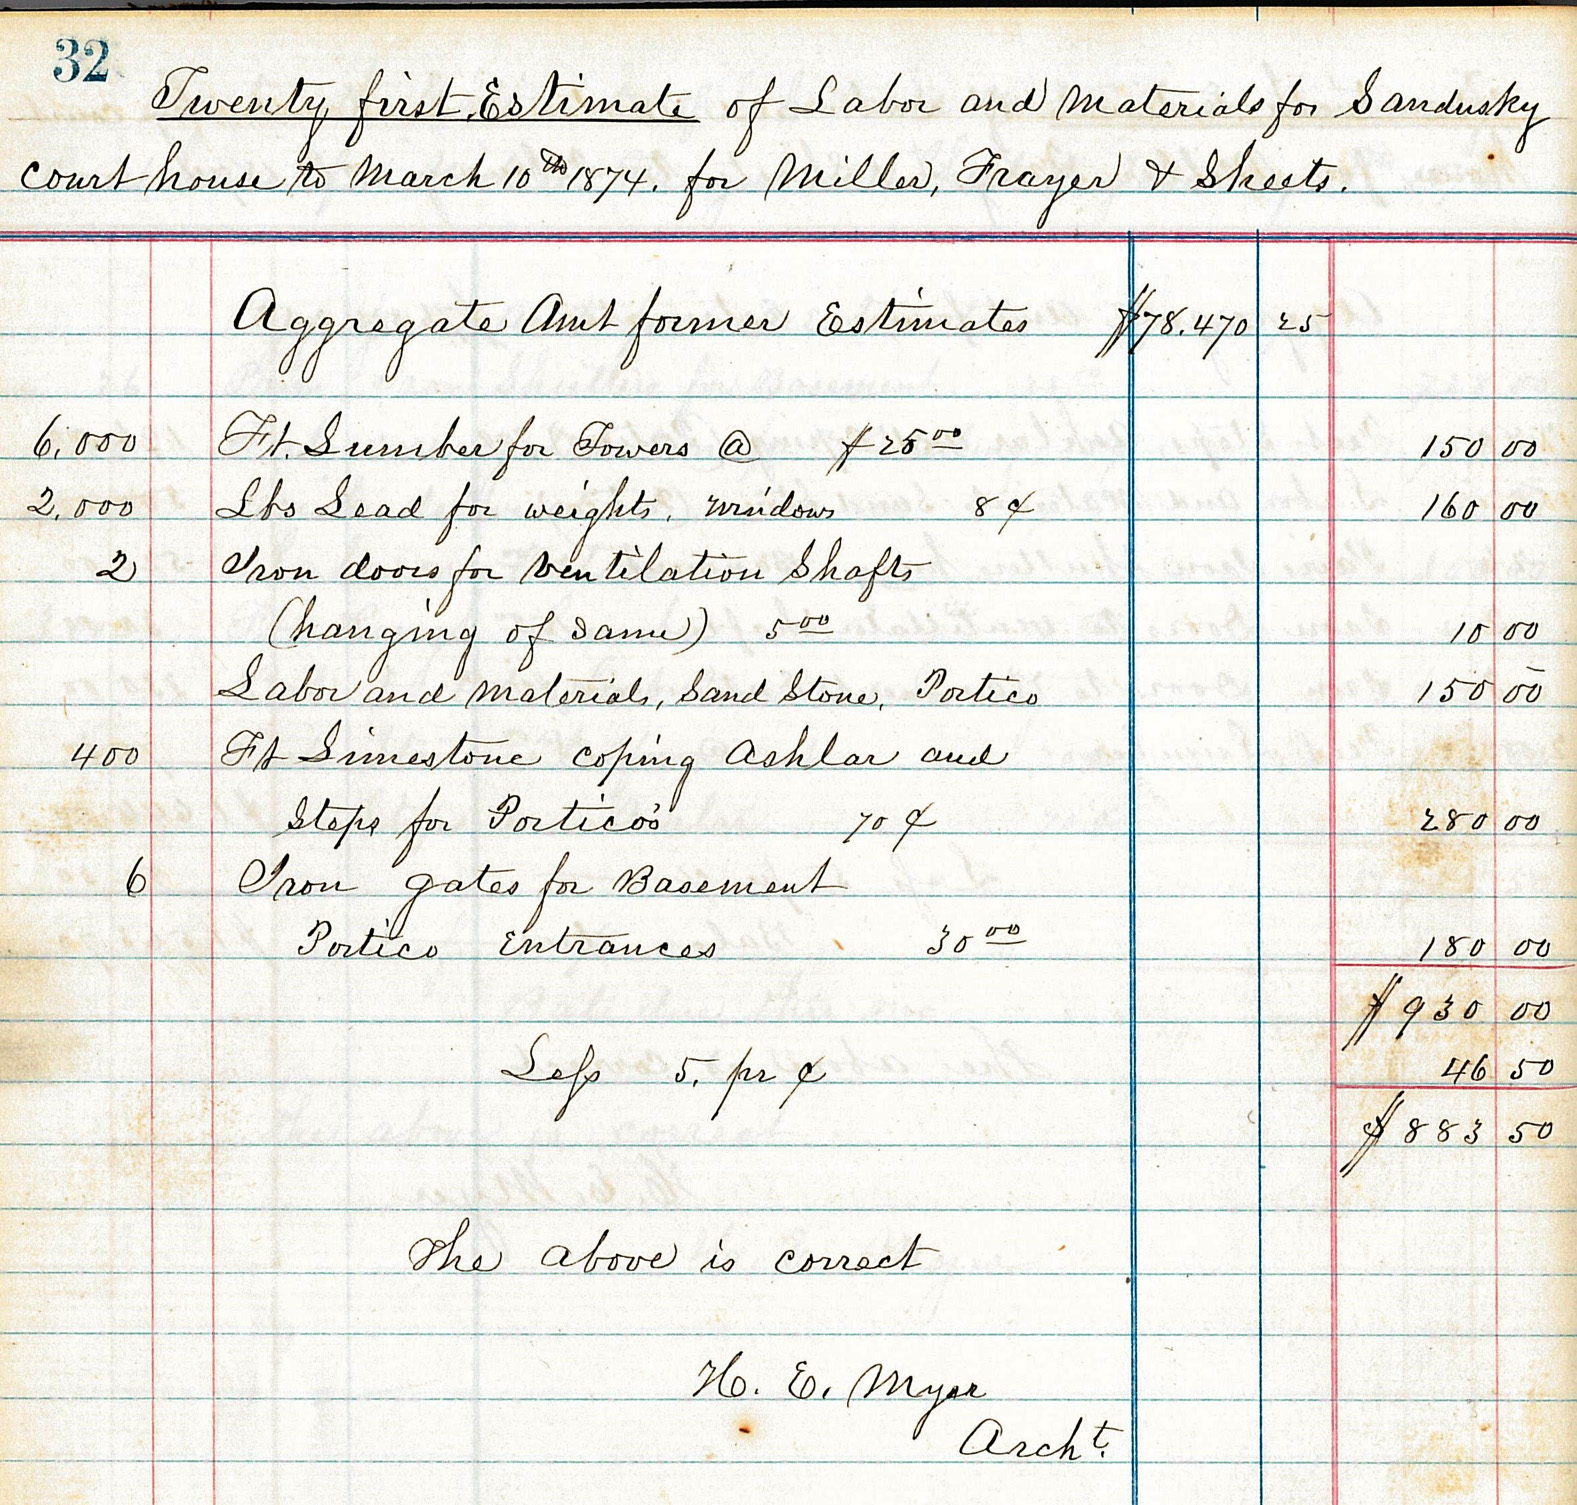 32
Twenty first Estimate of Labor and Materials for Sandusky
court house to March 10th 1874. for Miller, Frayer & Sheets.
Aggregate Amt former Estimates $78.470 25
6.000 Ft. Lumber for Towers @ $25 00 150 00
2.000 Lbs Lead for weights, windows 8 ¢ 160 00
2 Iron doors for Ventilation Shafts
(hanging of same) 5 00 10 00
Labor and materials, Sand Stone, Portico 150 00
400 Ft Limestone coping Ashlar and
Steps for Portico's 70 ¢ 280 00
6 Iron gates for Basement
Portico Entrances 30 00 180 00
$ 930 00
Less 5. pr ¢ 46 50
$ 883 50
The above is correct
H. E. Myer
Archt.